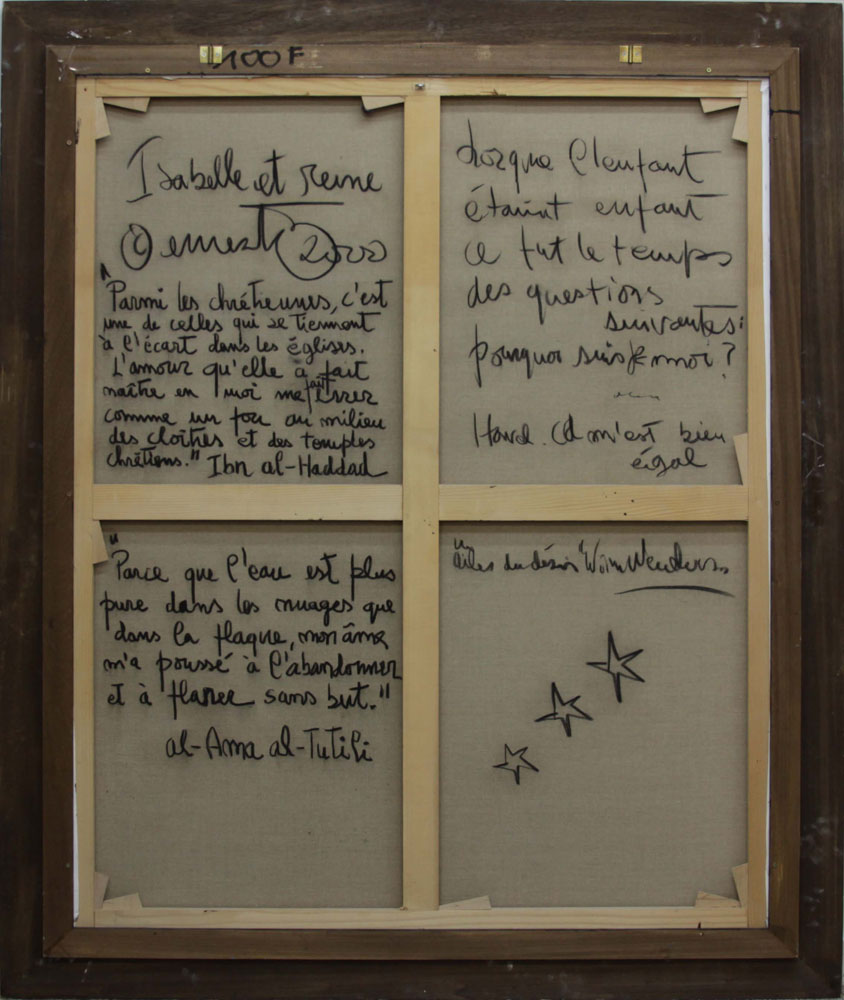 100F
Isabelle et reine
© ernest 2000
"Parmi les chrétiennes, c'est
une de celles qui se tiennent
à l'écart dans les églises.
L'amour qu'elle a fait
naître en moi me fait errer
comme un fou au milieu
des cloîtres et des temples
chrétiens." Ibn al-Haddad
Lorsque l'enfant
était enfant
ce fut le temps
des questions
suivantes:
pourquoi suis je moi?
m'est bien
égal
"Parce que l'eau est plus
pure dans les nuages que
dans la flaque, mon âme
m'a poussé à l'abandonner
et à flaner sans but."
al-Ama al-Tutili
"ailes du désir" Wim Wenders